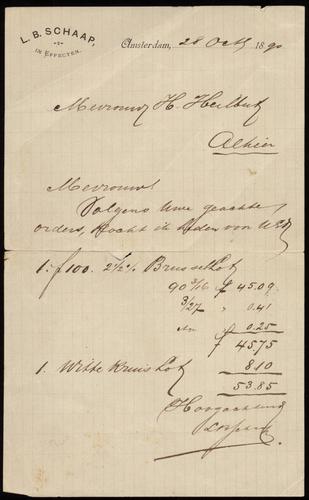 L. B. SCHAAP,
IN EFFECTEN.
Amsterdam, 28 Oct 1890
Mevrouw H. Heilbut
Alhier
Mevrouw!
Volgens Uwe geachte
orders, kocht ik heden van UEd
1. f 100. 2½% Brussel Lot
90 3/16 f 45.09
3/27 " 0.41
f 0.25
f 45.75
1. Witte Kruis Lot 8.10
53.85
Hoogachtend